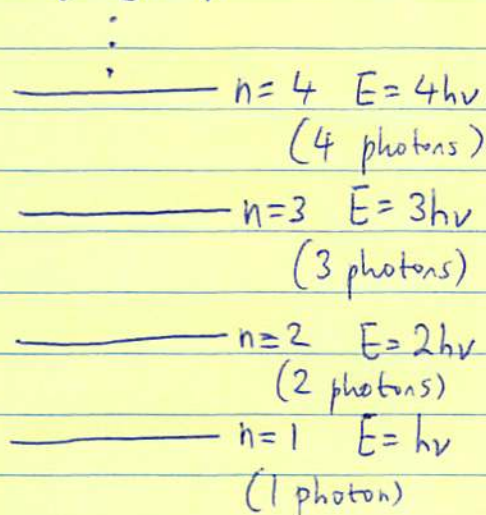 n=4 E=4hν
(4 photons)
n=3 E=3hν
(3 photons)
n=2 E=2hν
(2 photons)
n=1 E=hν
(1 photon)